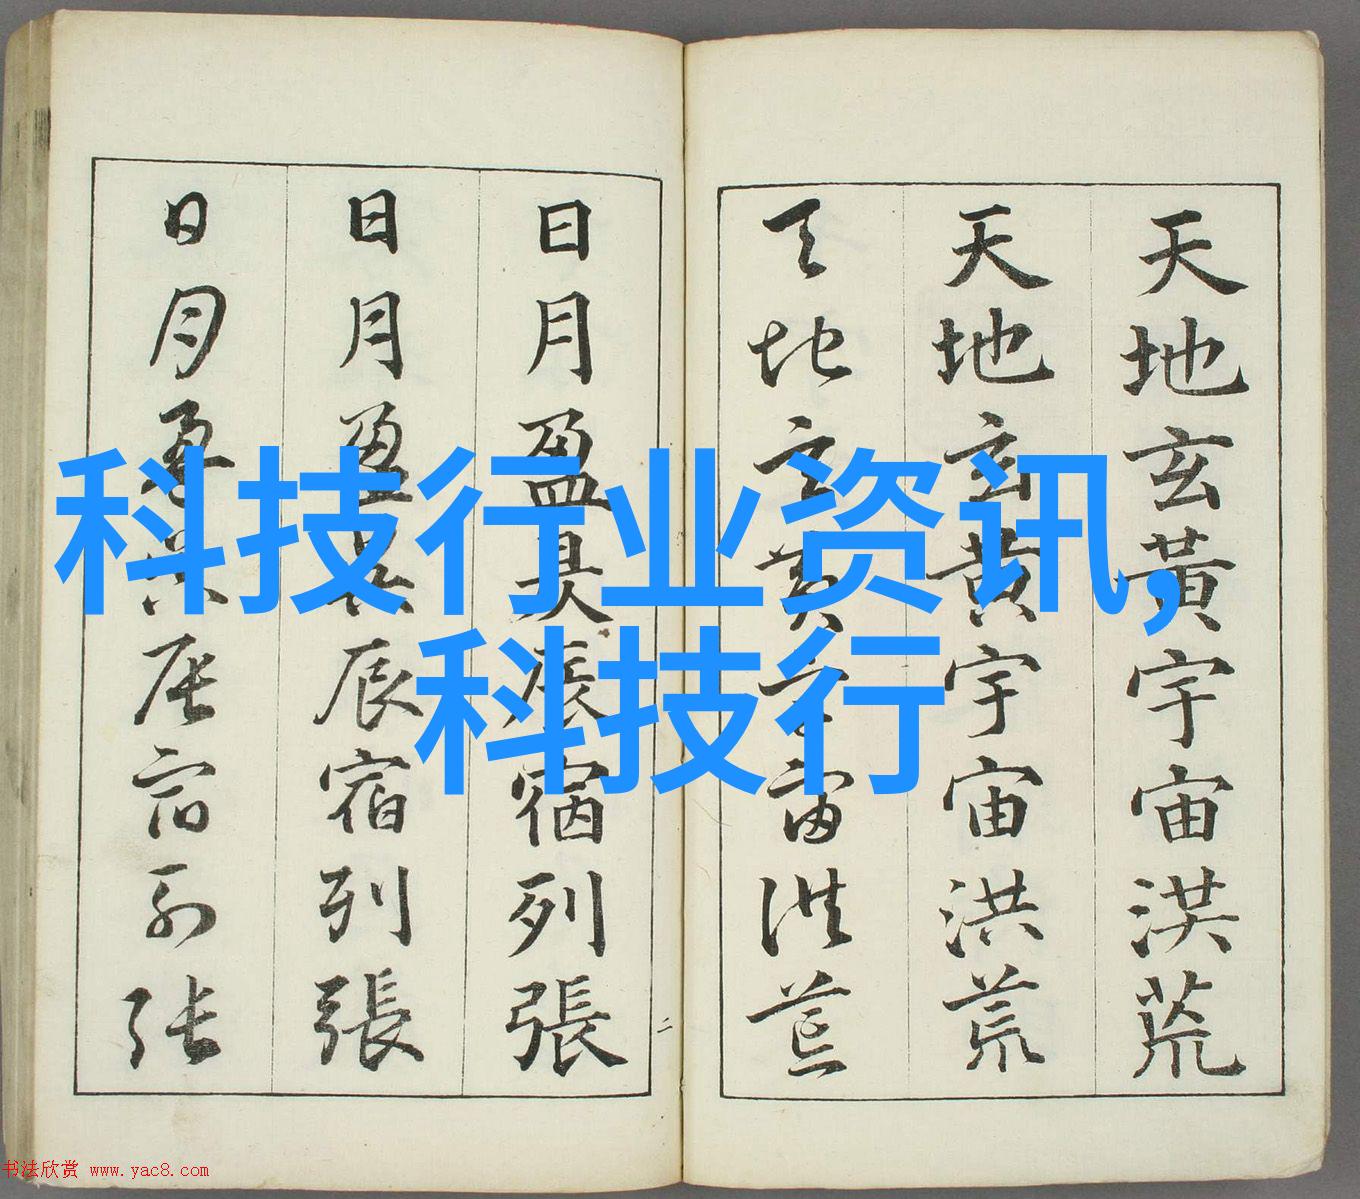 天地玄黃宇宙洪荒
天地玄黃宇宙洪荒
天地玄黃宇宙洪荒
日月盈昃辰宿列張
日月盈昃辰宿列張
日月盈昃辰宿列張
二
科技行业资讯,
科技行
书法欣赏 www.yac8.com